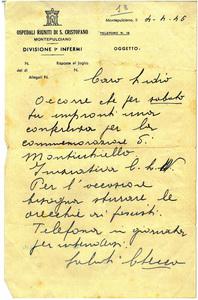 OSPEDALI RIUNITI DI S. CRISTOFANO
MONTEPULCIANO
DIVISIONE Iª INFERMI
Montepulciano, li 4-4-45
TELEFONO N. 18
OGGETTO:
N. Risposta al foglio
del di N.
Allegati N.
Caro Lidio
Occorre che per sabato
tu impronti una
conferenza per la
commemorazione di
Monticchiello
Iniziativa C.L.N.
Per l'occasione
bisogna sturare le
orecchie ai fascisti.
Telefona in giornata
per intenderci.
Saluti